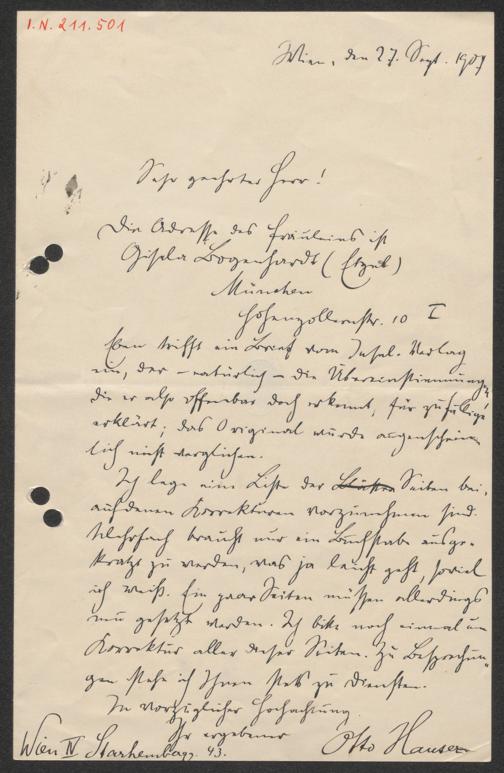 I.N. 211.501
Wien, den 27. Sept. 1907
Sehr geehrter Herr!
Die Adresse des Fräuleins ist
Gisela Bogenhardt (Etzel)
München
Hohenzollernstr. 10 I
Eben trifft ein Brief vom Insel-Verlag
ein, der – natürlich – die Übereinstimmungen,
die er also offenbar doch erkennt, für zufällige
erklärt; das Original wurde augenschein
lich nicht verglichen.
Ich lege eine Liste der Seiten bei,
auf denen Korrekturen vorzunehmen sind.
Mehrfach braucht nur ein Buchstabe ausge-
kratzt zu werden, was ja leicht geht, soviel
ich weiß. Ein paar Seiten müssen allerdings
neu gesetzt werden. Ich bitte noch einmal um
Korrektur aller dieser Seiten. Zu Besprechun-
gen stehe ich Ihnen stets zu Diensten.
In vorzüglicher Hochachtung
Ihr ergebener
Otto Hauser
Wien IV Starhembergg. 43.